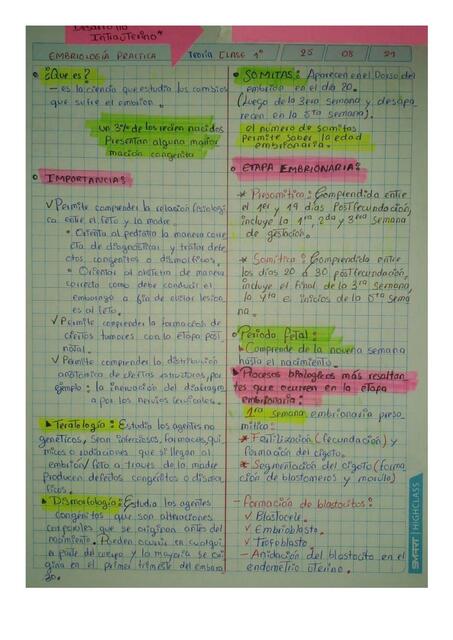 Desarrollo
Intrauterino*
EMBRIOLOGÍA PRACTICA
Teoría Clase 1°
25
08
21
¿Que es?
- es la ciencia que estudia los cambios
que sufre el embrion.
un 3% de los recien nacidos
Presentan alguna malfor
mación congenita
IMPORTANCIA:
✓ Permite comprender la relación fisiologi
ca entre el feto y la madre.
• Orienta al pediatra la manera corre
cta de diagnosticar y tratar defe
ctos congenitos o dismorficos.
• Orientar al obstetra de manera
correcta como debe conducir el
embarazo a fin de evitar lesion
es al feto.
✓ Permite comprender la formación de
ciertos tumores con la etapa post
natal.
✓ Permite comprender la distribución
anatomica de ciertas estructuras, por
ejemplo: la inervación del diafragm
a por los nervios cervicales.
▸ Teratología: Estudia los agentes no
genéticos, sean infecciosos, farmacos, quí
micos o radiaciones que si llegan al
embrión/feto a traves de la madre
Producen defectos congénitos o dismor
ficos.
▸ Dismorfología: Estudia los agentes
congenitos que son alteraciones
corporales que se originan antes del
nacimiento. Pueden ocurrir en cualqui
er parte del cuerpo y la mayoría se ori
gina en el primer trimestre del embara
zo.
SOMITAS: Aparecen en el Dorso del
embrión en el día 20.
(luego de la 3era semana y desapa
recen en la 5ta semana).
el número de somitas
Permite saber la edad
embrionaria.
ETAPA EMBRIONARIA:
* Presomitica: Comprendida entre
el 1er y 19 días Postfecundación,
incluye la 1ra, 2da y 3era semana
de gestación.
* Somitica: Comprendida entre
los días 20 a 30 postfecundación,
incluye el final de la 3ra semana,
la 4ta e inicios de la 5ta sema
na.
Periodo Fetal:
▸ Comprende de la novena semana
hasta el nacimiento.
▸ Procesos biologicos más resaltan
tes que ocurren en la etapa
embrionaria:
1ra semana embrionaria preso
mitica:
* Fertilización (fecundación) y
Formación del cigoto.
* Segmentación del cigoto (forma
ción de blastomeros y morula)
- Formación de blastocitos:
✓ Blastocele.
✓ Embrioblasto.
✓ Trofoblasto.
- Anidación del blastocito en el
endometrio uterino.
SMART | HIGHCLASS